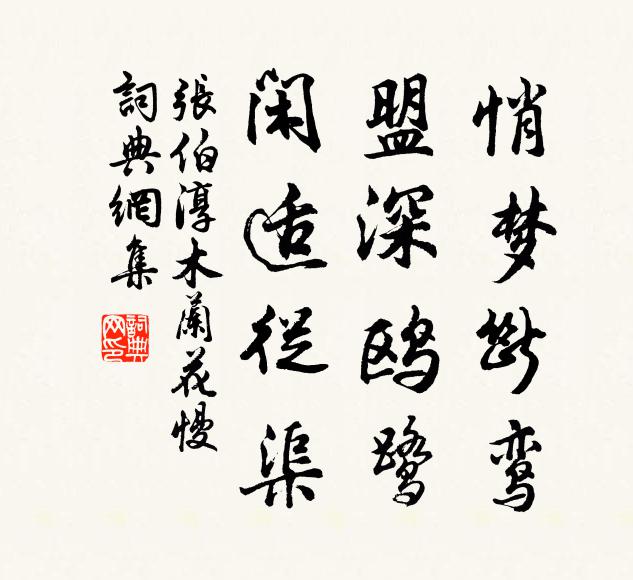 悄梦断鸾
盟深鸥鹭
闲适从渠
張伯淳木蘭花慢
詞典網集
詞典网印